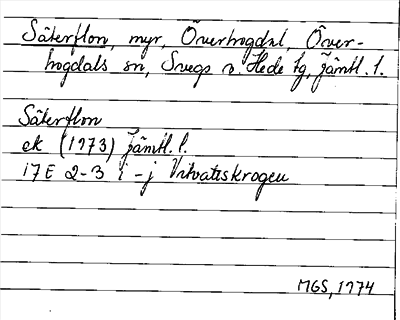 Säterflon, myr, Överhogdal, Över-
hogdals sn, Svegs o. Hede tg, Jämtl. l.
Säterflon
ek (1973) Jämtl. l.
17E 2-3 i-j Vitvattskrogen
MGS, 1974